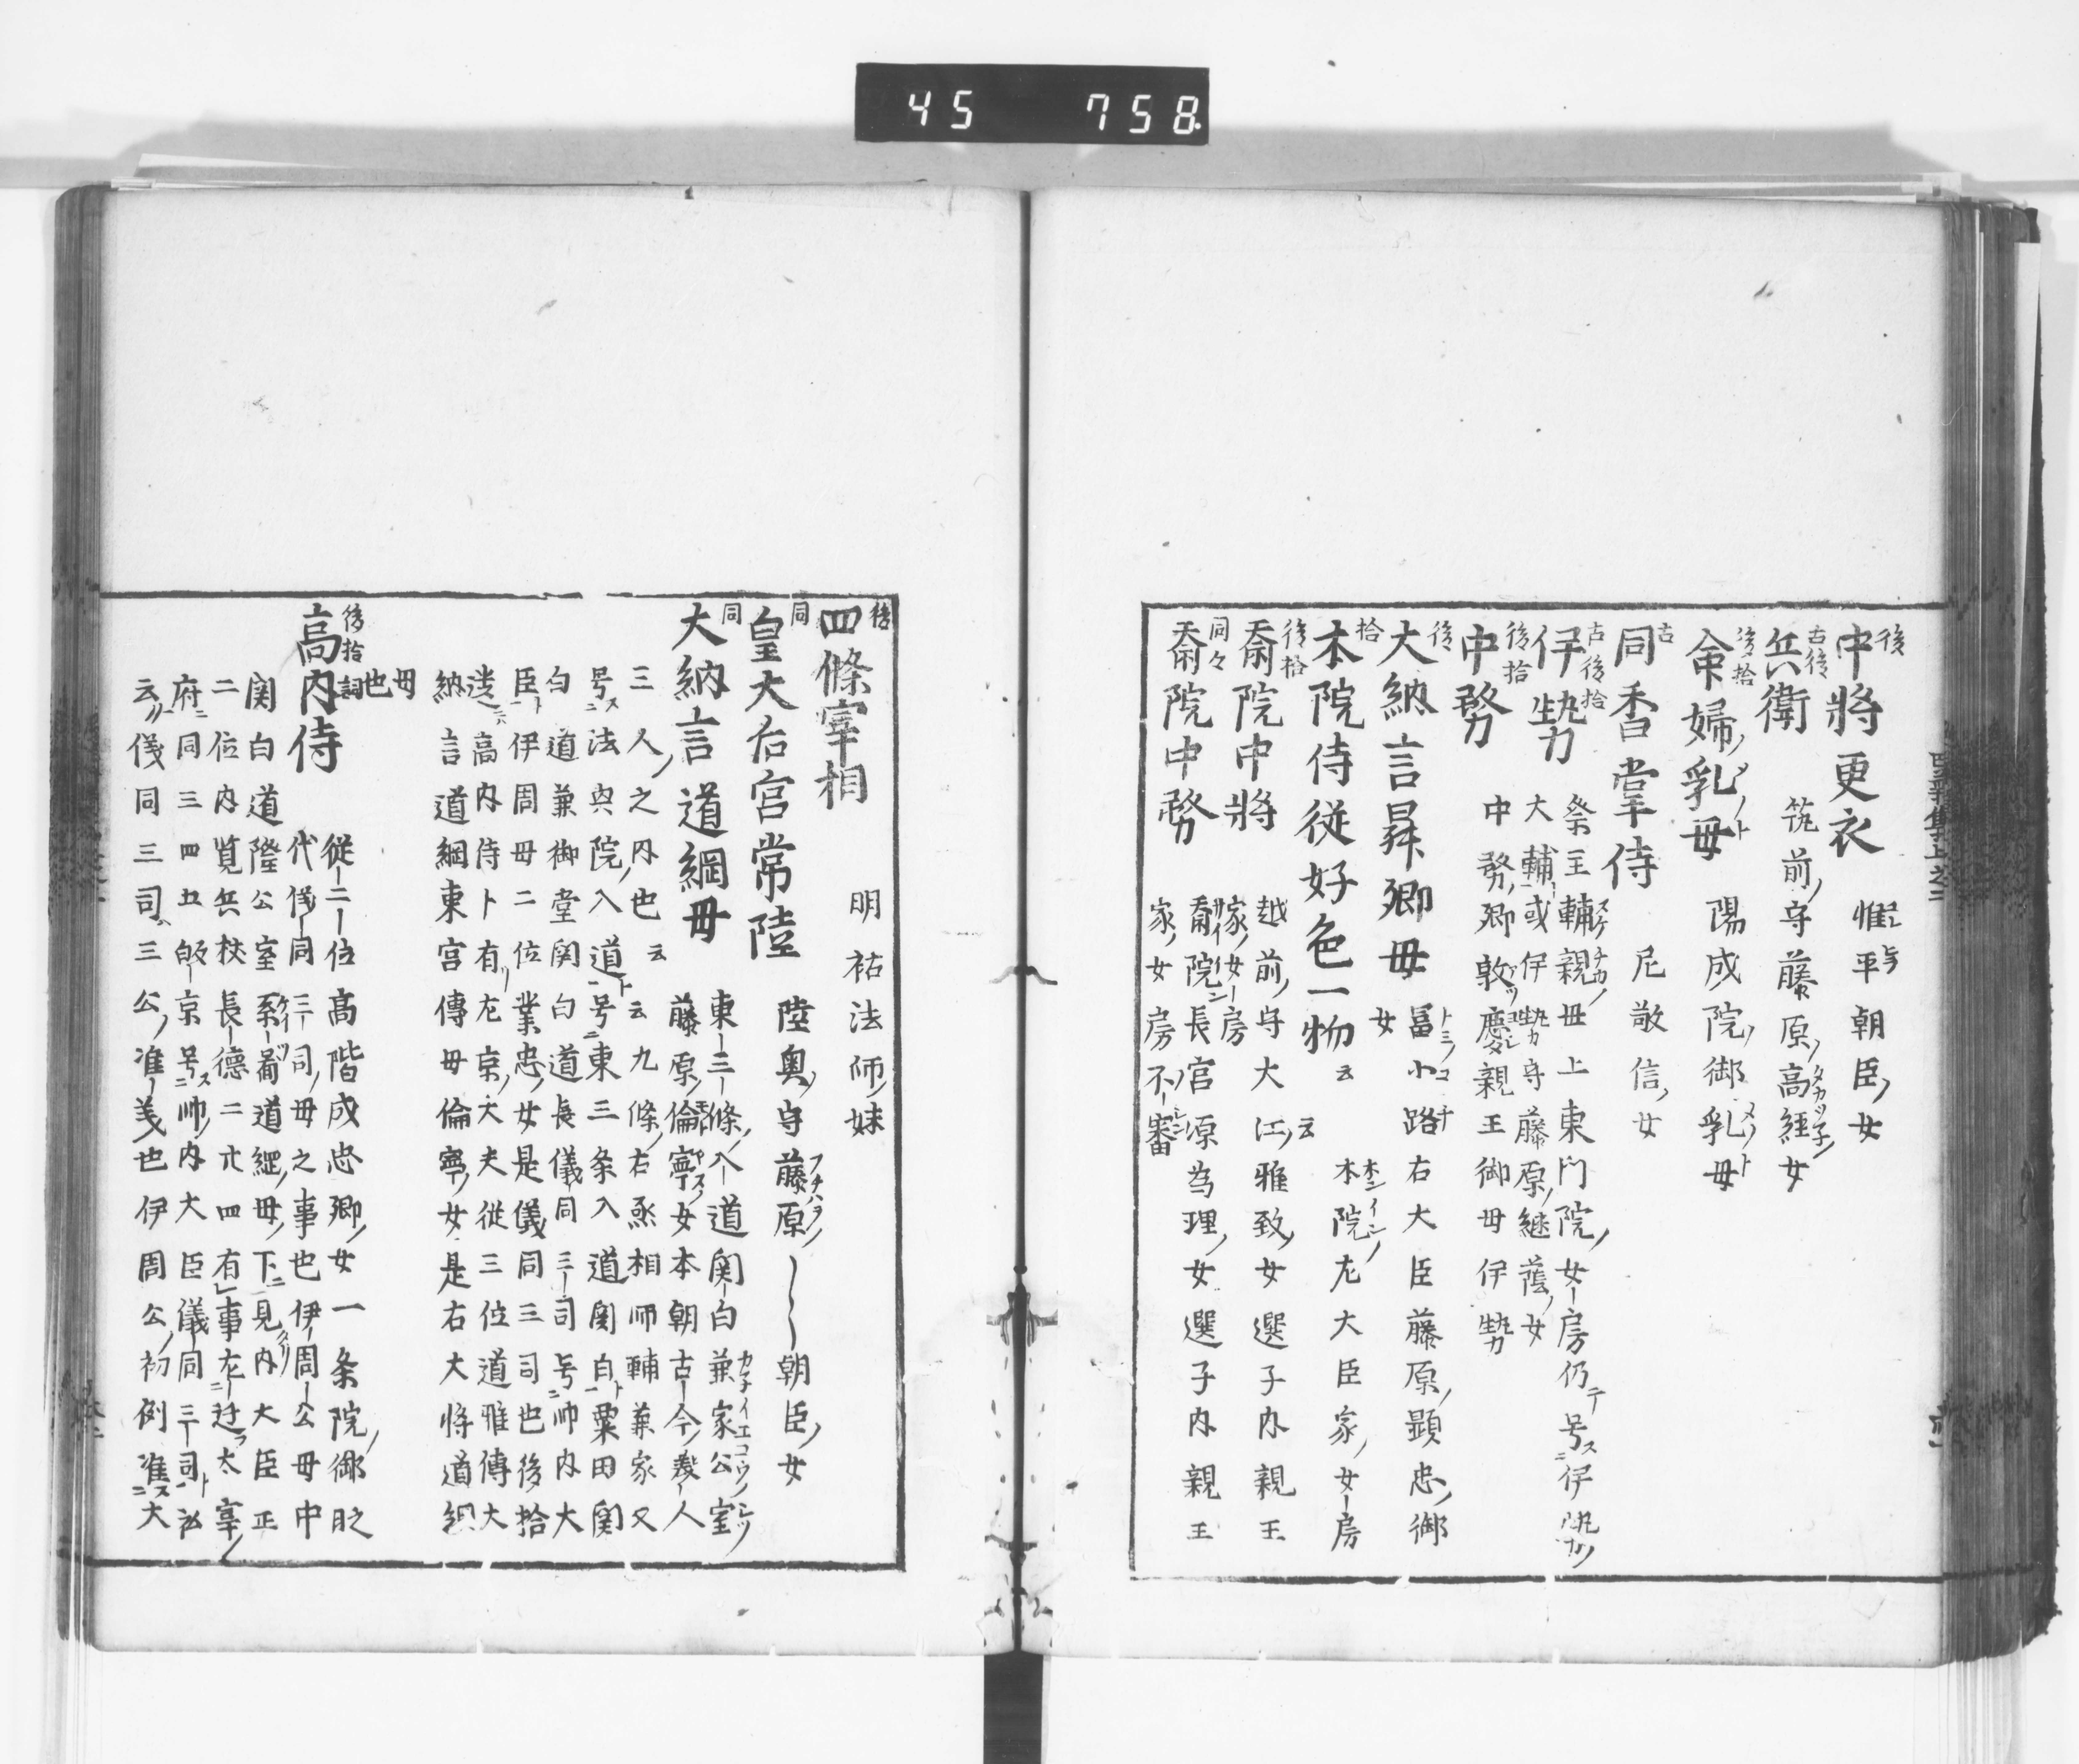 45 758
後
中將更衣 惟平朝臣ノ女
古後
兵衛 筑前ノ守藤原ノ高經女
後拾
命婦ノ乳母 陽成院ノ御乳母
古
同香掌侍 尼敬信ノ女
古後拾
伊勢 祭主輔親母上東門院ノ女房仍テ号ス伊勢ノ
大輔ト或伊勢守藤原ノ継蔭ノ女
後拾
中務 中務ノ卿敦慶親王御母伊勢
後
大納言昇卿母 冨小路右大臣藤原ノ顕忠ノ御
女
拾
本院侍従好色一物云 本院ノ左大臣家ノ女房
後拾
斎院中將 越前ノ守大江ノ雅致ノ女選子内親王
家ノ女房云
同々
斎院中務 斎院長官源為理ノ女選子内親王
家ノ女房不審
後
四條宰相 明祐法師ノ妹
同
皇大后宮常陸 陸奥ノ守藤原ノ〳〵朝臣ノ女
同
大納言道綱母 東三條ノ入道関白兼家公ノ室
藤原ノ倫寧女本朝古今ノ美人
三人ノ之内也云云九條ノ右丞相師輔兼家又
号ス法興院ノ入道ト号ニ東三条入道関白ト粟田関
白道兼御堂関白道長儀同三司号ニ帥内大
臣ト伊周母二位業忠ノ女是儀同三司也後拾
遺ニ高内侍ト有左京ノ大夫従三位道雅傳大
納言道綱東宮傳母倫寧ノ女是右大将道綱
母
也
後拾詞
高内侍 従二位高階成忠卿ノ女一条院ノ御時
代儀同三司ノ母之事也伊周公母中
関白道隆公室系啚道綱ノ母ノ下ニ見タリ内大臣正
二位内覧兵杖長徳二六四有事左迁太宰ノ
府ニ同三四五皈京号ス帥ノ内大臣儀同三司ト
云儀同三司ハ三公ノ准義也伊周公ノ初例准ス大